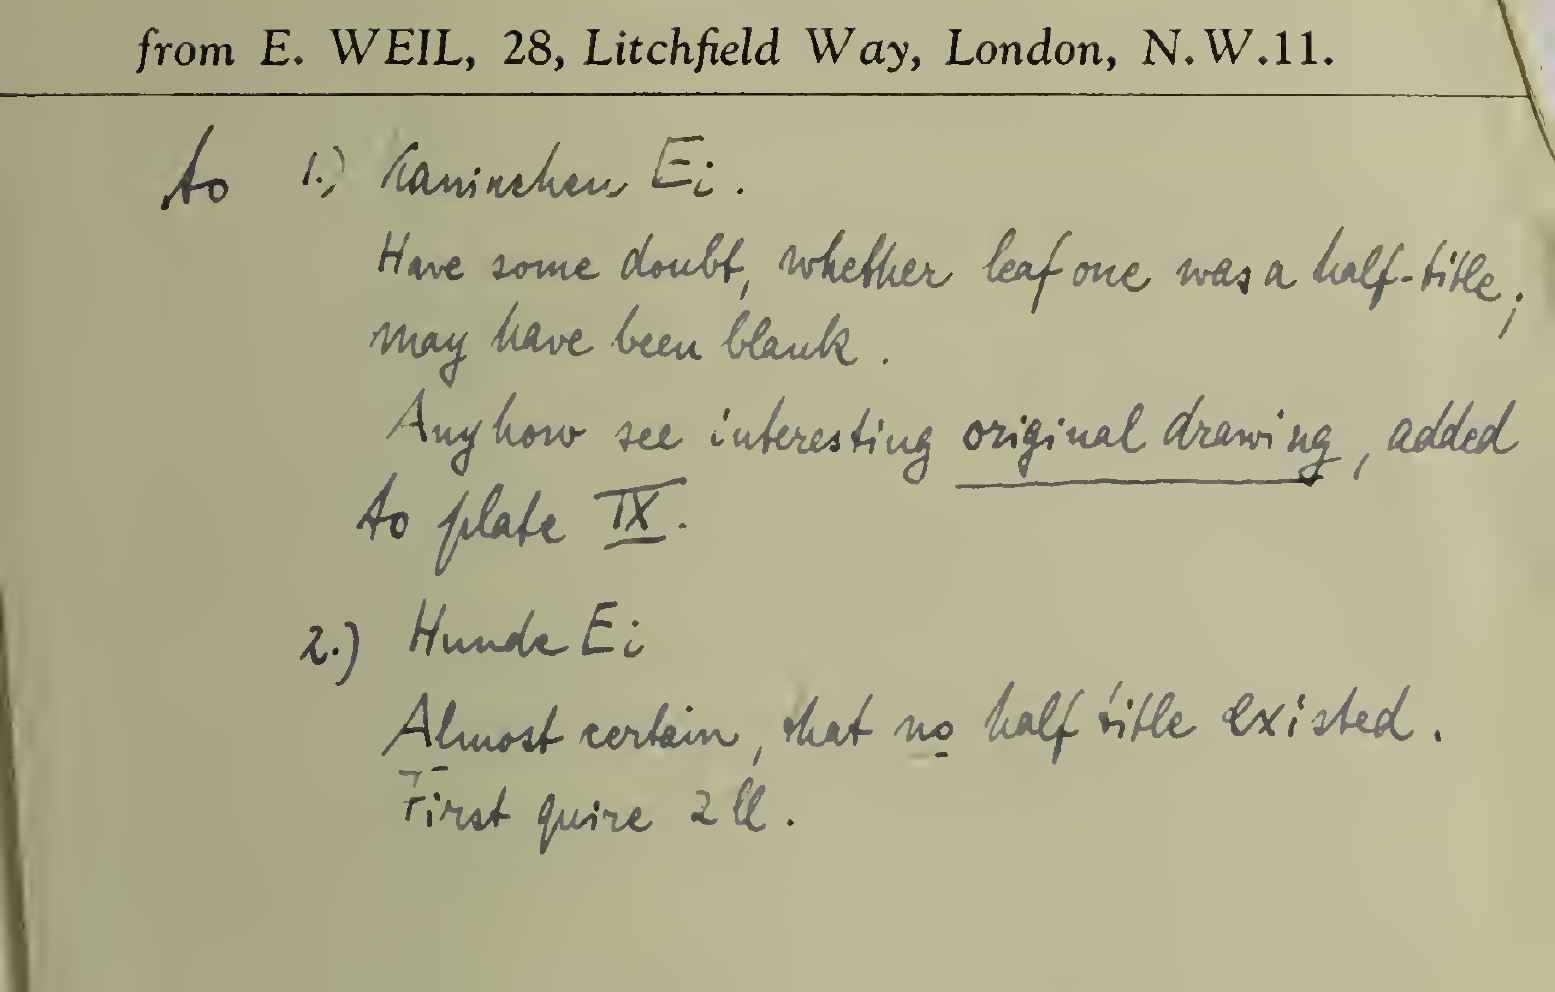 from E. WEIL, 28, Litchfield Way, London, N.W.11.
to 1.) Kaninchen Ei.
Have some doubt, whether leaf one was a half-title;
may have been blank.
Anyhow see interesting original drawing, added
to plate IX.
2.) Hunde Ei
Almost certain, that no half title existed.
First quire 2 ll.